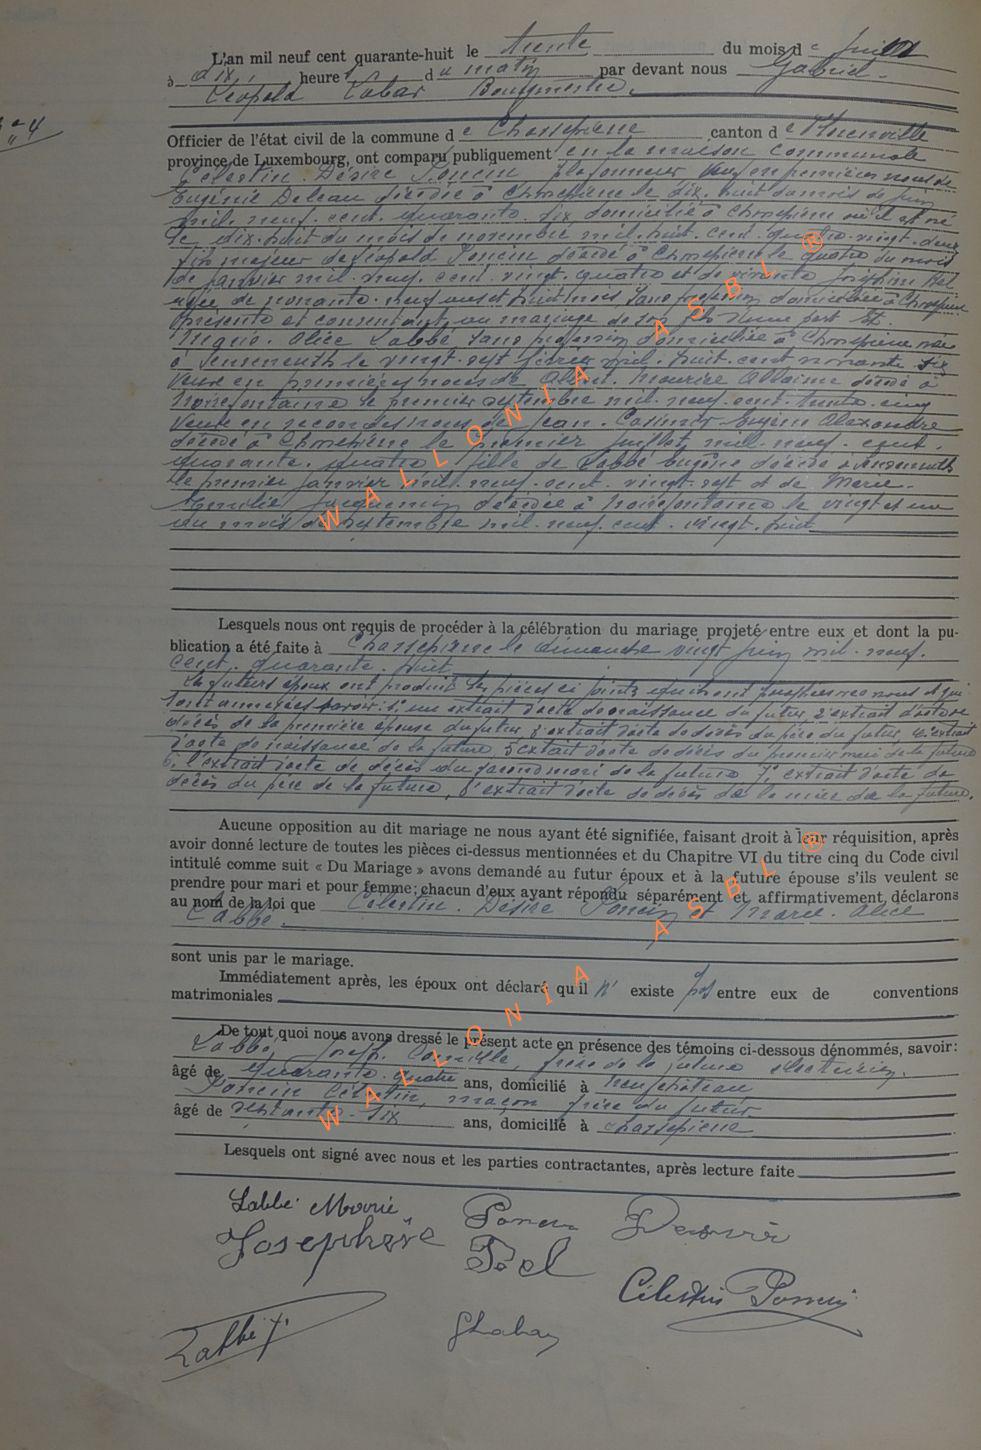 L'an mil neuf cent quarante-huit le trente du mois de juin
à dix heures du matin par devant nous Gabriel-
Léopold Labar Bourgmestre
Officier de l'état civil de la commune de Chassepierre canton de Florenville
province de Luxembourg, ont comparu publiquement en la maison communale
Célestin. Désiré Poncin plafonneur veuf en premières noces de
Eugénie Deleau décédée à Chassepierre le dix. huit du mois de juin
mil. neuf. cent. quarante. six domicilié à Chassepierre où il est né
le dix-huit du mois de novembre mil. huit. cent. quatre-vingt-deux
fils majeur de Léopold Poncin décédé à Chassepierre le quatre du mois
de janvier mil. neuf. cent. vingt. quatre et de vivante Joséphine
âgée de nonante. neuf ans et huit mois sans profession domiciliée à Chassepierre
présente et consentant au mariage de son fils d'une part Et
Marie. Alice Labbé sans profession domiciliée à Chassepierre née
à Sensenruth le vingt. sept février mil. huit. cent nonante. six
veuve en premières noces de Albert. Maurice Allaime décédé à
Noirefontaine le premier septembre mil. neuf. cent. trente. cinq
veuve en secondes noces de Jean. Casimir Eugène Alexandre
décédé à Chassepierre le premier juillet mil. neuf. cent.
quarante. quatre fille de Labbé Eugène décédé à Sensenruth
le premier janvier mil. neuf. cent. vingt. sept et de Marie.
Emilie Jacquemin décédée à Noirefontaine le vingt et un
du mois de septembre mil. neuf. cent. vingt. huit
Lesquels nous ont requis de procéder à la célébration du mariage projeté entre eux et dont la pu-
blication a été faite à Chassepierre le dimanche vingt juin mil. neuf.
cent. quarante. huit
Les futurs époux ont produit les pièces ci jointes qui
sont annexées savoir: 1° un extrait d'acte de naissance du futur, 2° extrait d'acte de
décès de la première épouse du futur, 3° extrait d'acte de décès du père du futur, 4° extrait
d'acte de naissance de la future 5° extrait d'acte de décès du premier mari de la future
6° l'extrait d'acte de décès du second mari de la future 7° extrait d'acte de
décès du père de la future, 8° extrait d'acte de décès de la mère de la future.
Aucune opposition au dit mariage ne nous ayant été signifiée, faisant droit à leur réquisition, après
avoir donné lecture de toutes les pièces ci-dessus mentionnées et du Chapitre VI du titre cinq du Code civil
intitulé comme suit « Du Mariage » avons demandé au futur époux et à la future épouse s'ils veulent se
prendre pour mari et pour femme; chacun d'eux ayant répondu séparément et affirmativement, déclarons
au nom de la loi que Célestin. Désiré Poncin et Marie. Alice
Labbé
sont unis par le mariage.
Immédiatement après, les époux ont déclaré qu'il n' existe pas entre eux de conventions
matrimoniales
De tout quoi nous avons dressé le présent acte en présence des témoins ci-dessous dénommés, savoir:
Labbé, Joseph. Camille, frère de la future électricien,
âgé de quarante. quatre ans, domicilié à Neufchâteau
Poncin Célestin, maçon frère du futur
âgé de septante. six ans, domicilié à Chassepierre
Lesquels ont signé avec nous et les parties contractantes, après lecture faite
Labbé Marie Poncin Désiré
Josephine Poel
Célestin Poncin
Labbé J. GLabar
WALLONIA ASBL ®
WALLONIA ASBL ®